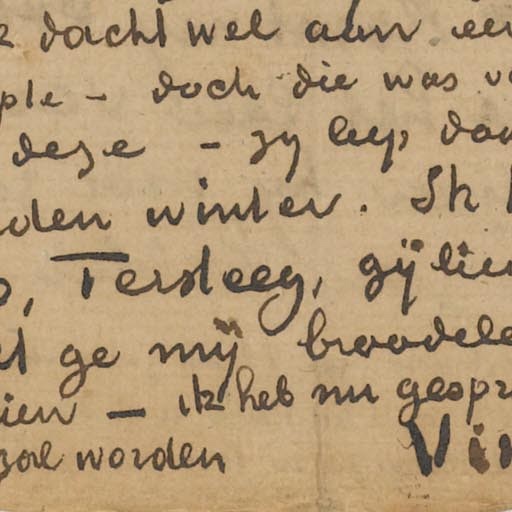 dacht wel aan een
ple – doch die was v
deze – zy liep doo
den winter. Ik
, Tersteeg, gÿ lie
et ge mÿ broodelo
ien — ik heb nu gespr
zal worden Vin